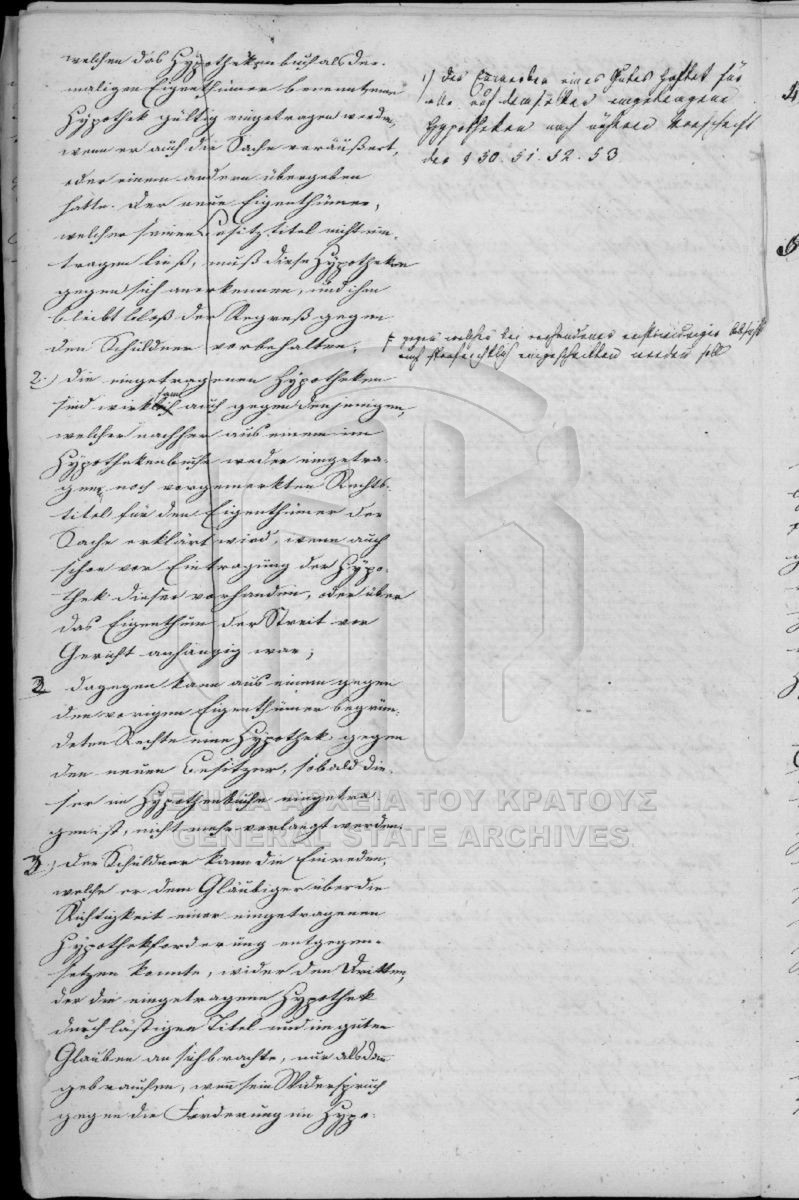 welchen das Hypothekenbuch als der-
maligen Eigenthümer benennt, eine
Hypothek gültig eingetragen werden,
wenn er auch die Sache veräußert,
oder einem andern übergeben
hatte. Der neue Eigenthümer,
welcher seinen Besitztitel nicht ein
tragen ließ, muß diese Hypotheken
gegen sich anerkennen, und ihm
bleibt bloß der Regreß gegen
den Schuldner vorbehalten;
2.) die eingetragenen Hypotheken
sind wirksam auch gegen denjenigen,
welcher nachher aus einem im
Hypothekenbuche weder eingetra-
gen noch vorgemerkten Rechts-
titel für den Eigenthümer der
Sache erklärt wird, wenn auch
schon vor Eintragung der Hypo-
thek dieser vorhanden, oder über
das Eigenthum der Streit vor
Gericht anhängig war;
2 dagegen kann aus einem gegen
den vorigen Eigenthümer begrün-
deten Rechte eine Hypothek gegen
den neuen Besitzer, sobald die-
ser im Hypothenbuche eingetra
gen ist, nicht mehr verlangt werden.
3.) Der Schuldner kann die Einreden,
welche er dem Gläubiger über die
Richtigkeit einer eingetragenen
Hypothekforderung entgegen-
setzen konnte, wider den Dritten,
der die eingetragene Hypothek
durch lästigen Titel und im guten
Glauben an sich brachte, nur alsdann
gebrauchen, wenn sein Widerspruch
gegen die Forderung im Hypo-
1) Der Erwerber eines Gutes haftet für
alle auf demselben eingetragene
Hypotheken nach näherer Vorschrift
der § 50. 51. 52. 53
gegen welchen bei
auch strafrechtlich eingeschritten werden soll
ΓΕΝΙΚΑ ΑΡΧΕΙΑ ΤΟΥ ΚΡΑΤΟΥΣ
GENERAL STATE ARCHIVES